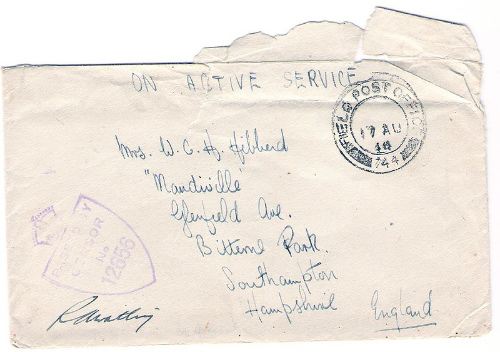 ON ACTIVE SERVICE
FIELD POST OFFICE
17 AU
144
Mrs. W. C. H. Hibberd
"Mandiville"
Glenfield Ave.
Bitterne Park.
Southampton
Hampshire England
PASSED BY
CENSOR
No
12606